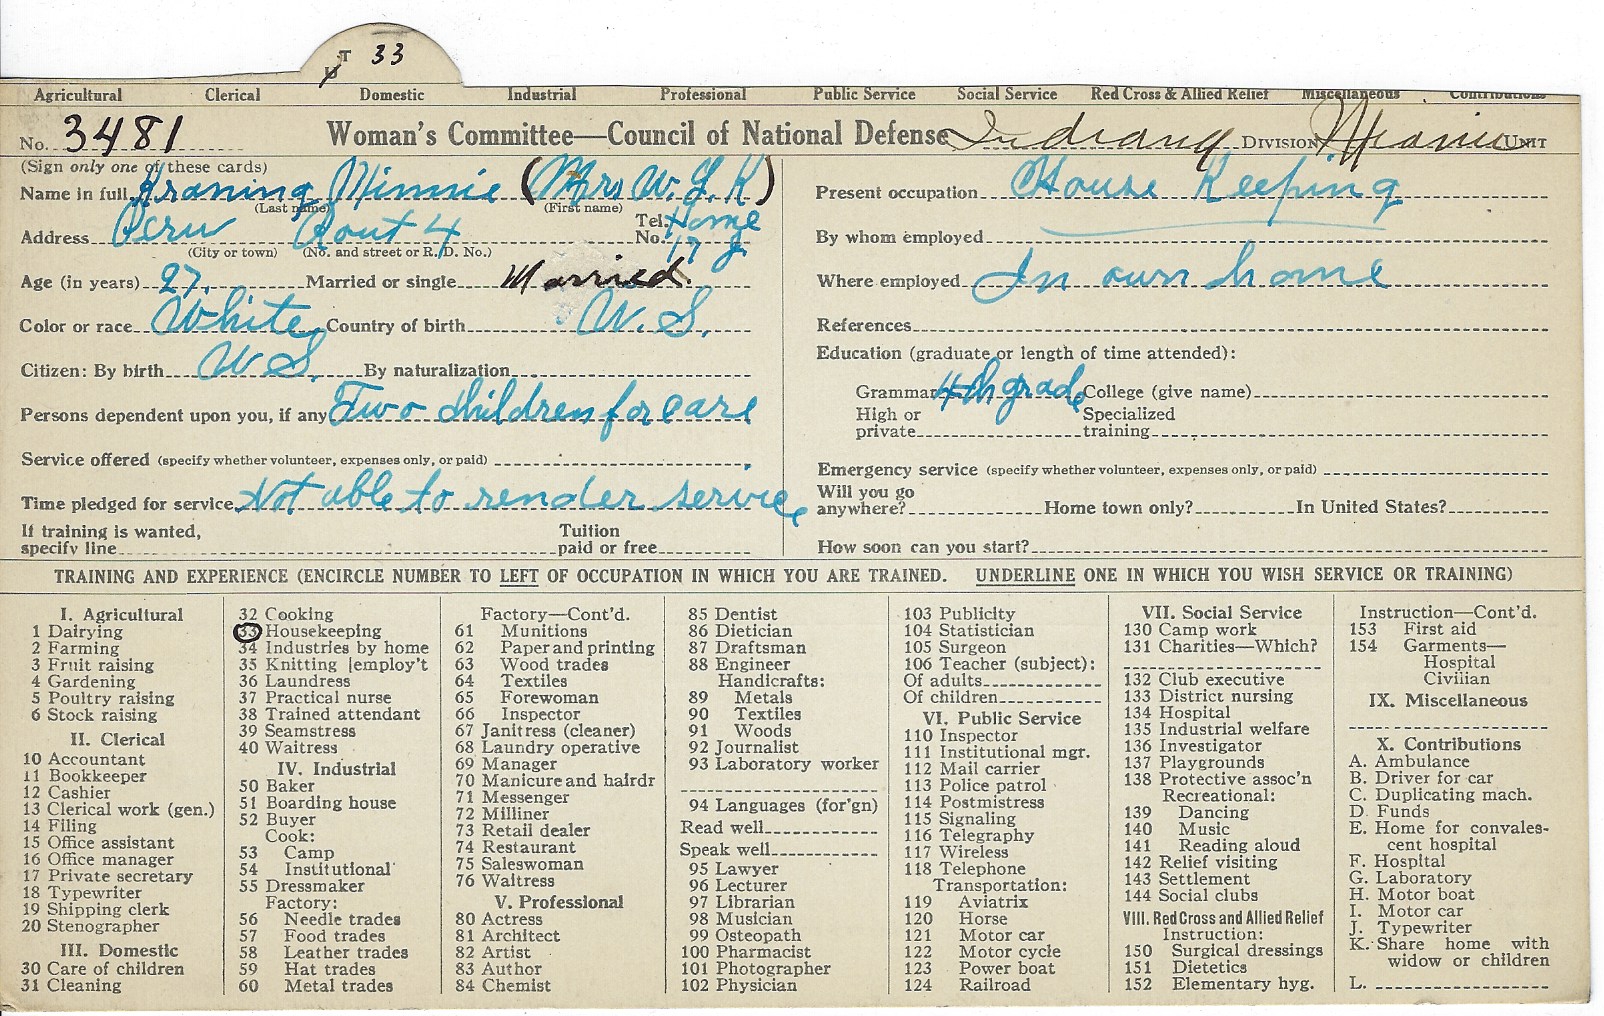 T 33
U
Agricultural Clerical Domestic Industrial Professional Public Service Social Service Red Cross & Allied Relief Miscellaneous Contributions
No. 3481 Woman's Committee—Council of National Defense Indiana DIVISION Miami UNIT
(Sign only one of these cards)
Name in full Kraning Minnie (Mrs W. G. K)
(Last name) (First name)
Address Peru Rout 4 Tel. No. Home 17 J
(City or town) (No. and street or R. D. No.)
Age (in years) 27. Married or single Married.
Color or race White Country of birth U. S.
Citizen: By birth U S. By naturalization
Persons dependent upon you, if any Two children for care
Service offered (specify whether volunteer, expenses only, or paid)
Time pledged for service Not able to render service
If training is wanted, specify line Tuition paid or free
Present occupation House Keeping
By whom employed
Where employed In own home
References
Education (graduate or length of time attended):
Grammar 4th grade College (give name)
High or private Specialized training
Emergency service (specify whether volunteer, expenses only, or paid)
Will you go anywhere? Home town only? In United States?
How soon can you start?
TRAINING AND EXPERIENCE (ENCIRCLE NUMBER TO LEFT OF OCCUPATION IN WHICH YOU ARE TRAINED. UNDERLINE ONE IN WHICH YOU WISH SERVICE OR TRAINING)
I. Agricultural
1 Dairying
2 Farming
3 Fruit raising
4 Gardening
5 Poultry raising
6 Stock raising
II. Clerical
10 Accountant
11 Bookkeeper
12 Cashier
13 Clerical work (gen.)
14 Filing
15 Office assistant
16 Office manager
17 Private secretary
18 Typewriter
19 Shipping clerk
20 Stenographer
III. Domestic
30 Care of children
31 Cleaning
32 Cooking
33 Housekeeping
34 Industries by home
35 Knitting [employ't
36 Laundress
37 Practical nurse
38 Trained attendant
39 Seamstress
40 Waitress
IV. Industrial
50 Baker
51 Boarding house
52 Buyer
Cook:
53 Camp
54 Institutional
55 Dressmaker
Factory:
56 Needle trades
57 Food trades
58 Leather trades
59 Hat trades
60 Metal trades
Factory—Cont'd.
61 Munitions
62 Paper and printing
63 Wood trades
64 Textiles
65 Forewoman
66 Inspector
67 Janitress (cleaner)
68 Laundry operative
69 Manager
70 Manicure and hairdr
71 Messenger
72 Milliner
73 Retail dealer
74 Restaurant
75 Saleswoman
76 Waitress
V. Professional
80 Actress
81 Architect
82 Artist
83 Author
84 Chemist
85 Dentist
86 Dietician
87 Draftsman
88 Engineer
Handicrafts:
89 Metals
90 Textiles
91 Woods
92 Journalist
93 Laboratory worker
94 Languages (for'gn)
Read well
Speak well
95 Lawyer
96 Lecturer
97 Librarian
98 Musician
99 Osteopath
100 Pharmacist
101 Photographer
102 Physician
103 Publicity
104 Statistician
105 Surgeon
106 Teacher (subject):
Of adults
Of children
VI. Public Service
110 Inspector
111 Institutional mgr.
112 Mail carrier
113 Police patrol
114 Postmistress
115 Signaling
116 Telegraphy
117 Wireless
118 Telephone
Transportation:
119 Aviatrix
120 Horse
121 Motor car
122 Motor cycle
123 Power boat
124 Railroad
VII. Social Service
130 Camp work
131 Charities—Which?
132 Club executive
133 District nursing
134 Hospital
135 Industrial welfare
136 Investigator
137 Playgrounds
138 Protective assoc'n
Recreational:
139 Dancing
140 Music
141 Reading aloud
142 Relief visiting
143 Settlement
144 Social clubs
VIII. Red Cross and Allied Relief
Instruction:
150 Surgical dressings
151 Dietetics
152 Elementary hyg.
Instruction—Cont'd.
153 First aid
154 Garments—
Hospital
Civilian
IX. Miscellaneous
X. Contributions
A. Ambulance
B. Driver for car
C. Duplicating mach.
D. Funds
E. Home for convales-
cent hospital
F. Hospital
G. Laboratory
H. Motor boat
I. Motor car
J. Typewriter
K. Share home with
widow or children
L.